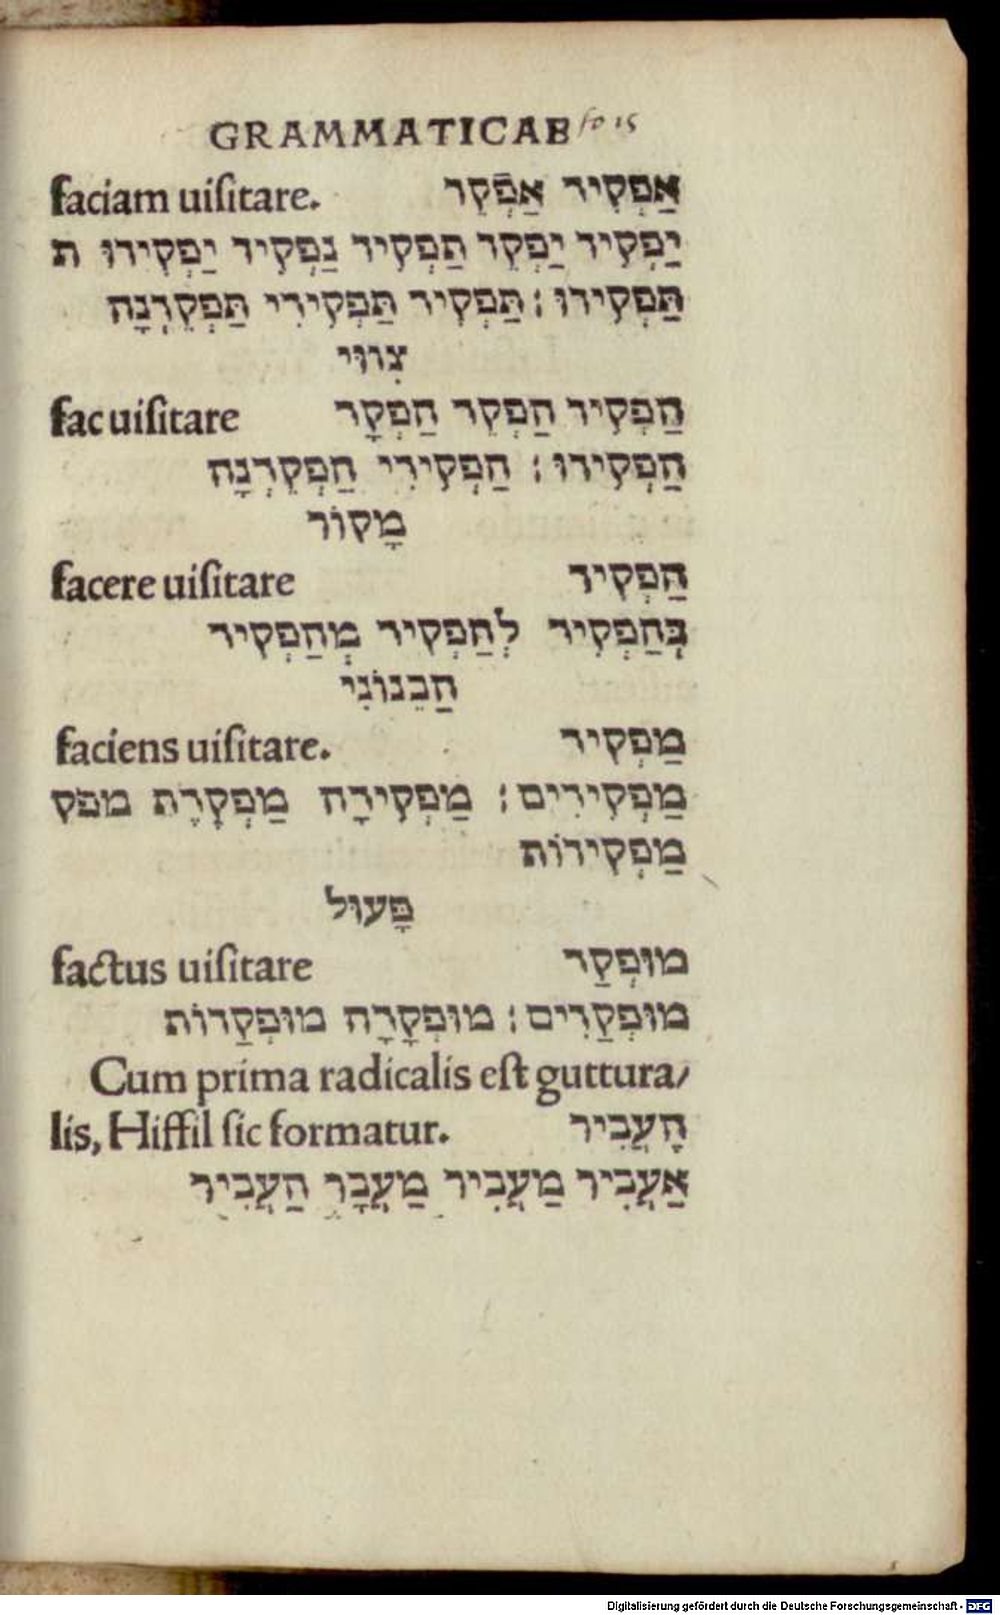 GRAMMATICAE fo 15
faciam uiſitare. אַפְקִיד אַפְקֵד
יַפְקִיד יַפְקֵד תַפְקִיד נַפְקִיד יַפְקִידוּ ת
תַּפְקִידוּ : תַּפְקִיד תַּפְקִידִי תַּפְקֵדְנָה
צִוּוּי
fac uiſitare הַפְקִיד הַפְקֵד הַפְקָד
הַפְקִידוּ : הַפְקִידִי הַפְקֵדְנָה
מָקוֹר
facere uiſitare הַפְקִיד
בְּהַפְקִיד לְהַפְקִיד מְהַפְקִיד
הַבֵנוֹנִי
faciens uiſitare. מַפְקִיד
מַפְקִידִים : מַפְקִידָה מַפְקֶדֶת מפק
מַפְקִידוֹת
פָּעוּל
factus uiſitare מוּפְקַד
מוּפְקַדִים : מוּפְקָדָה מוּפְקַדוֹת
Cum prima radicalis eſt guttura/
lis, Hiffil ſic formatur. הָעֳבִיר
אַעֲבִיר מַעֲבִיר מַעֲבָר הַעֲבִיר
Digitalisierung gefördert durch die Deutsche Forschungsgemeinschaft - DFG